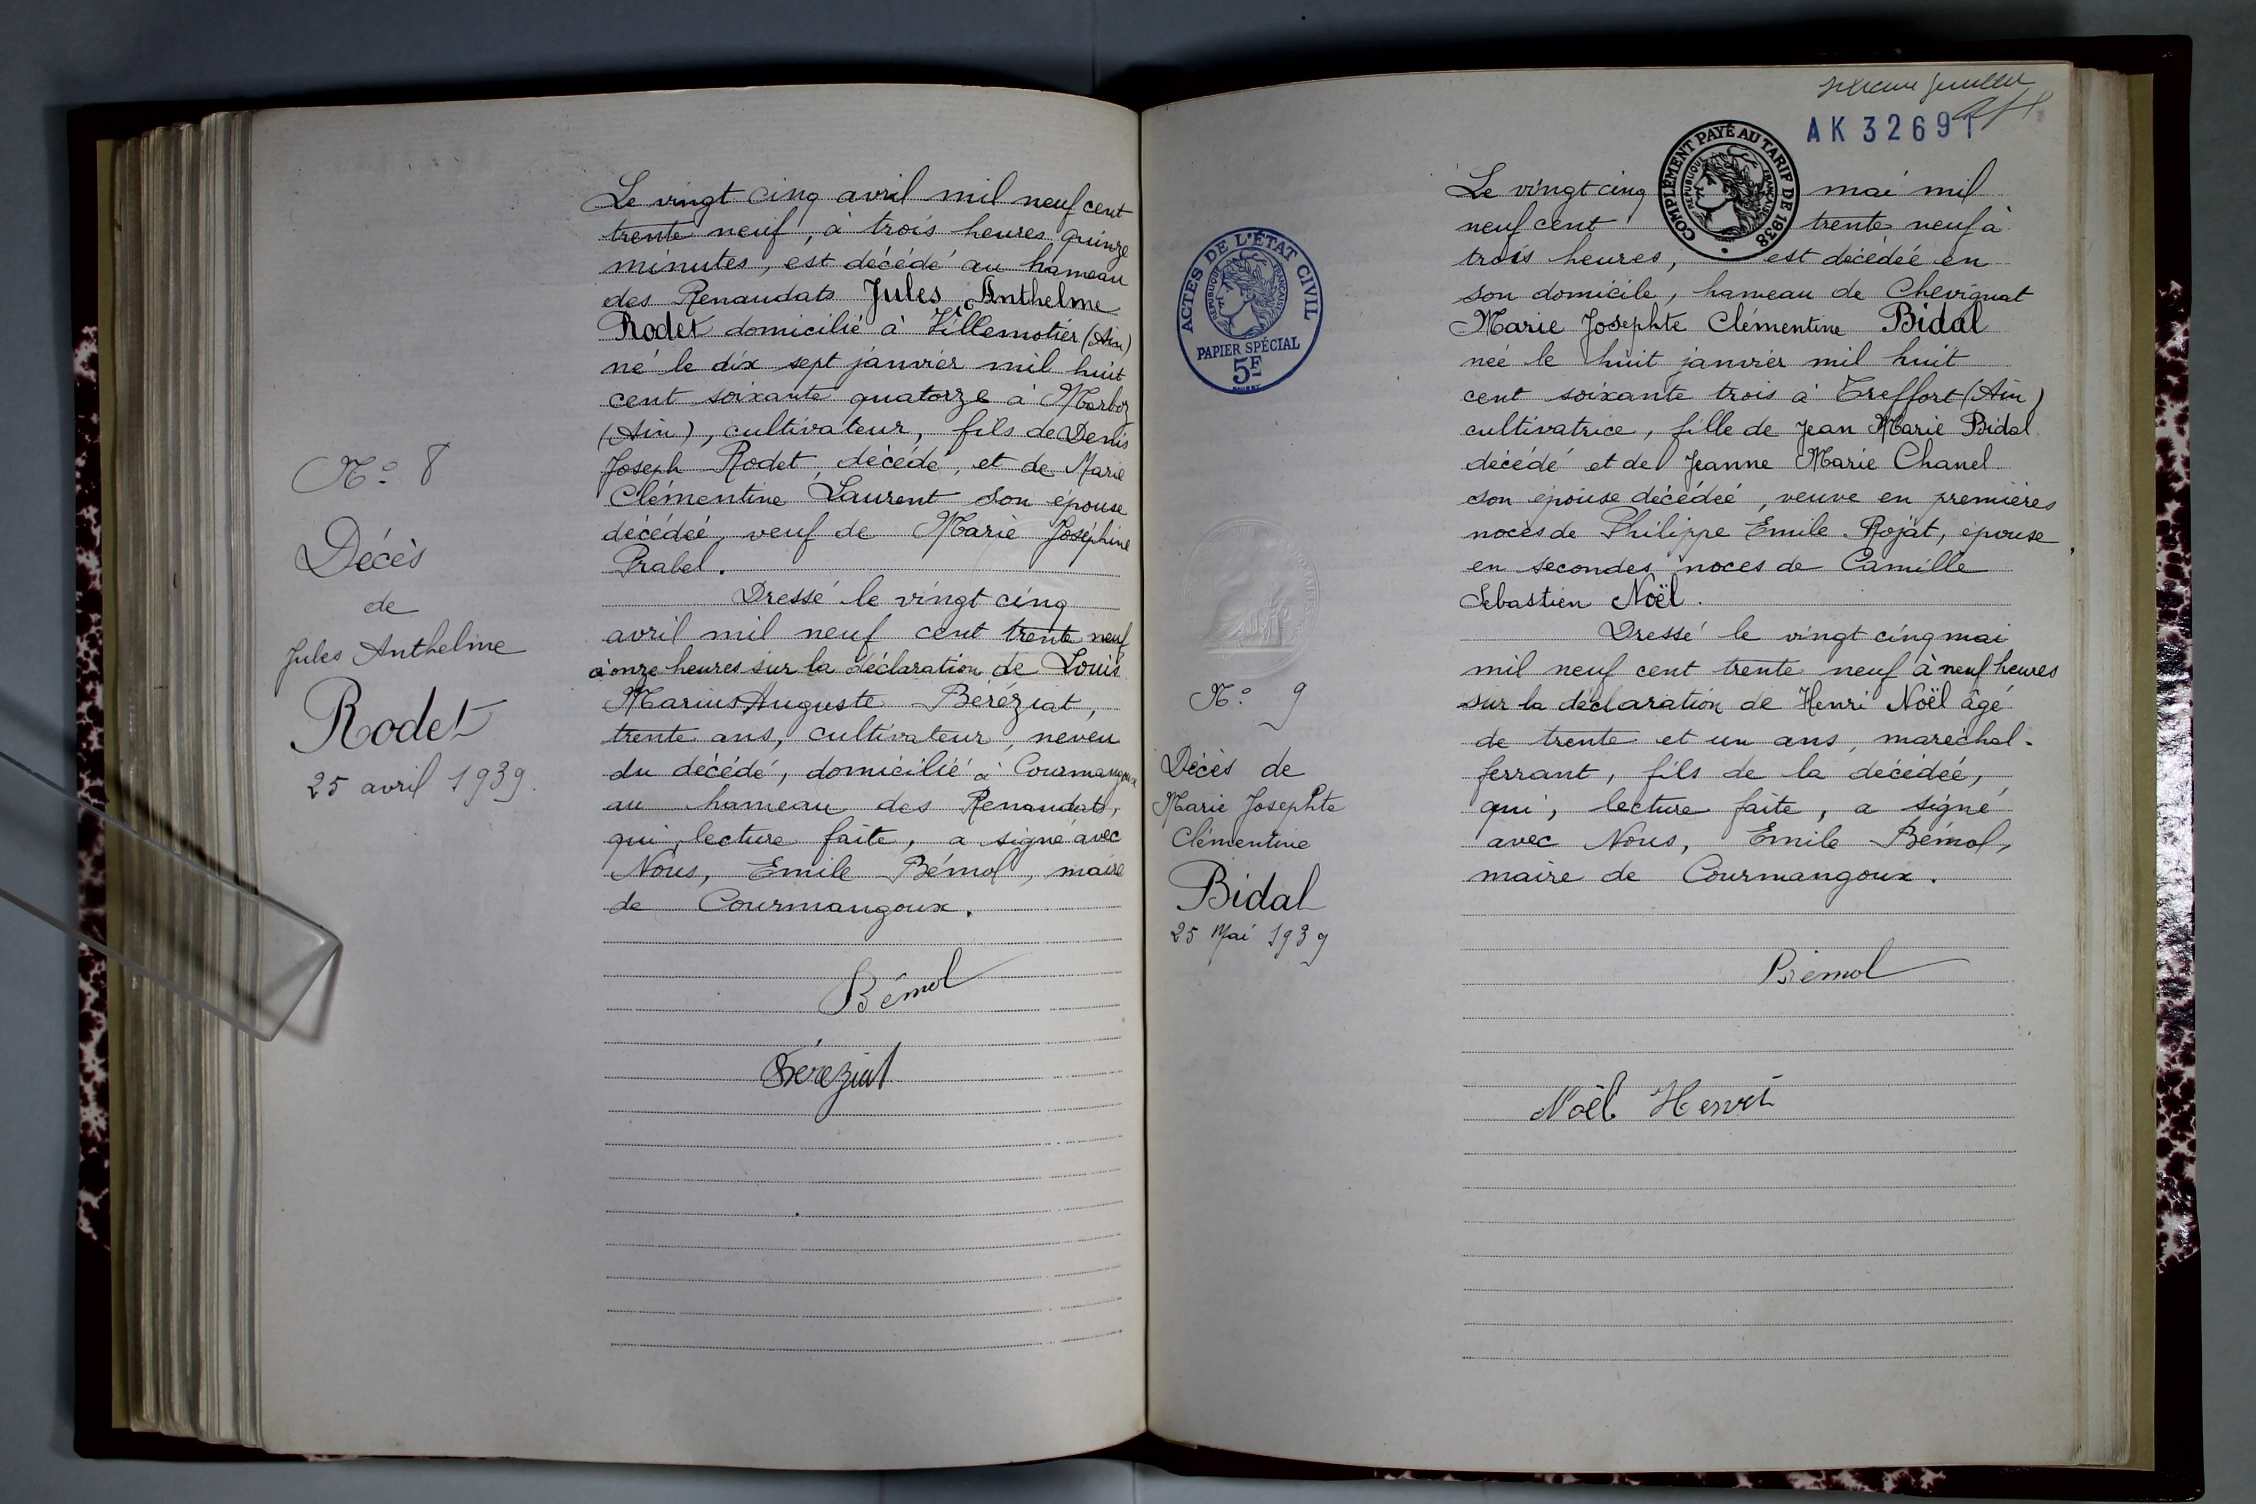 N° 8
Décès
de
Jules Anthelme
Rodet
25 avril 1939.
Le vingt cinq avril mil neuf cent
trente neuf, à trois heures quinze
minutes, est décédé au hameau
des Renaudats Jules Anthelme
Rodet domicilié à Villemotier (Ain)
né le dix sept janvier mil huit
cent soixante quatorze à Marboz
(Ain), cultivateur, fils de Denis
Joseph Rodet, décédé, et de Marie
Clémentine Laurent son épouse
décédée, veuf de Marie Joséphine
Prabel.
Dressé le vingt cinq
avril mil neuf cent trente neuf
à onze heures sur la déclaration de Louis
Marius Auguste Beréziat,
trente ans, cultivateur, neveu
du décédé, domicilié à Courmangoux
au hameau des Renaudats,
qui, lecture faite, a signé avec
Nous, Emile Bémol, maire
de Courmangoux.
Bémol
Béréziat
AK 32691
COMPLÉMENT PAYÉ AU TARIF DE 1938
RÉPUBLIQUE FRANÇAISE
ACTES DE L'ÉTAT CIVIL
RÉPUBLIQUE FRANÇAISE
PAPIER SPÉCIAL
5F
N° 9
Décès de
Marie Josephte
Clémentine
Bidal
25 Mai 1939
Le vingt cinq mai mil
neuf cent trente neuf à
trois heures, est décédée en
son domicile, hameau de Chevignat
Marie Josephte Clémentine Bidal
née le huit janvier mil huit
cent soixante trois à Treffort (Ain)
cultivatrice, fille de Jean Marie Bidal
décédé et de Jeanne Marie Chanel
son épouse décédée, veuve en premières
noces de Philippe Emile Rojat, épouse
en secondes noces de Camille
Sebastien Noël.
Dressé le vingt cinq mai
mil neuf cent trente neuf à neuf heures
sur la déclaration de Henri Noël âgé
de trente et un ans, maréchal-
ferrant, fils de la décédée,
qui, lecture faite, a signé
avec Nous, Emile Bémol,
maire de Courmangoux.
Bémol
Noël Henri